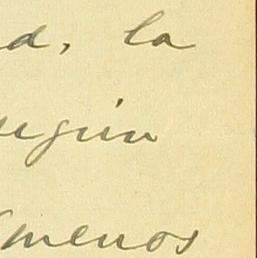 d, la
segun
menos